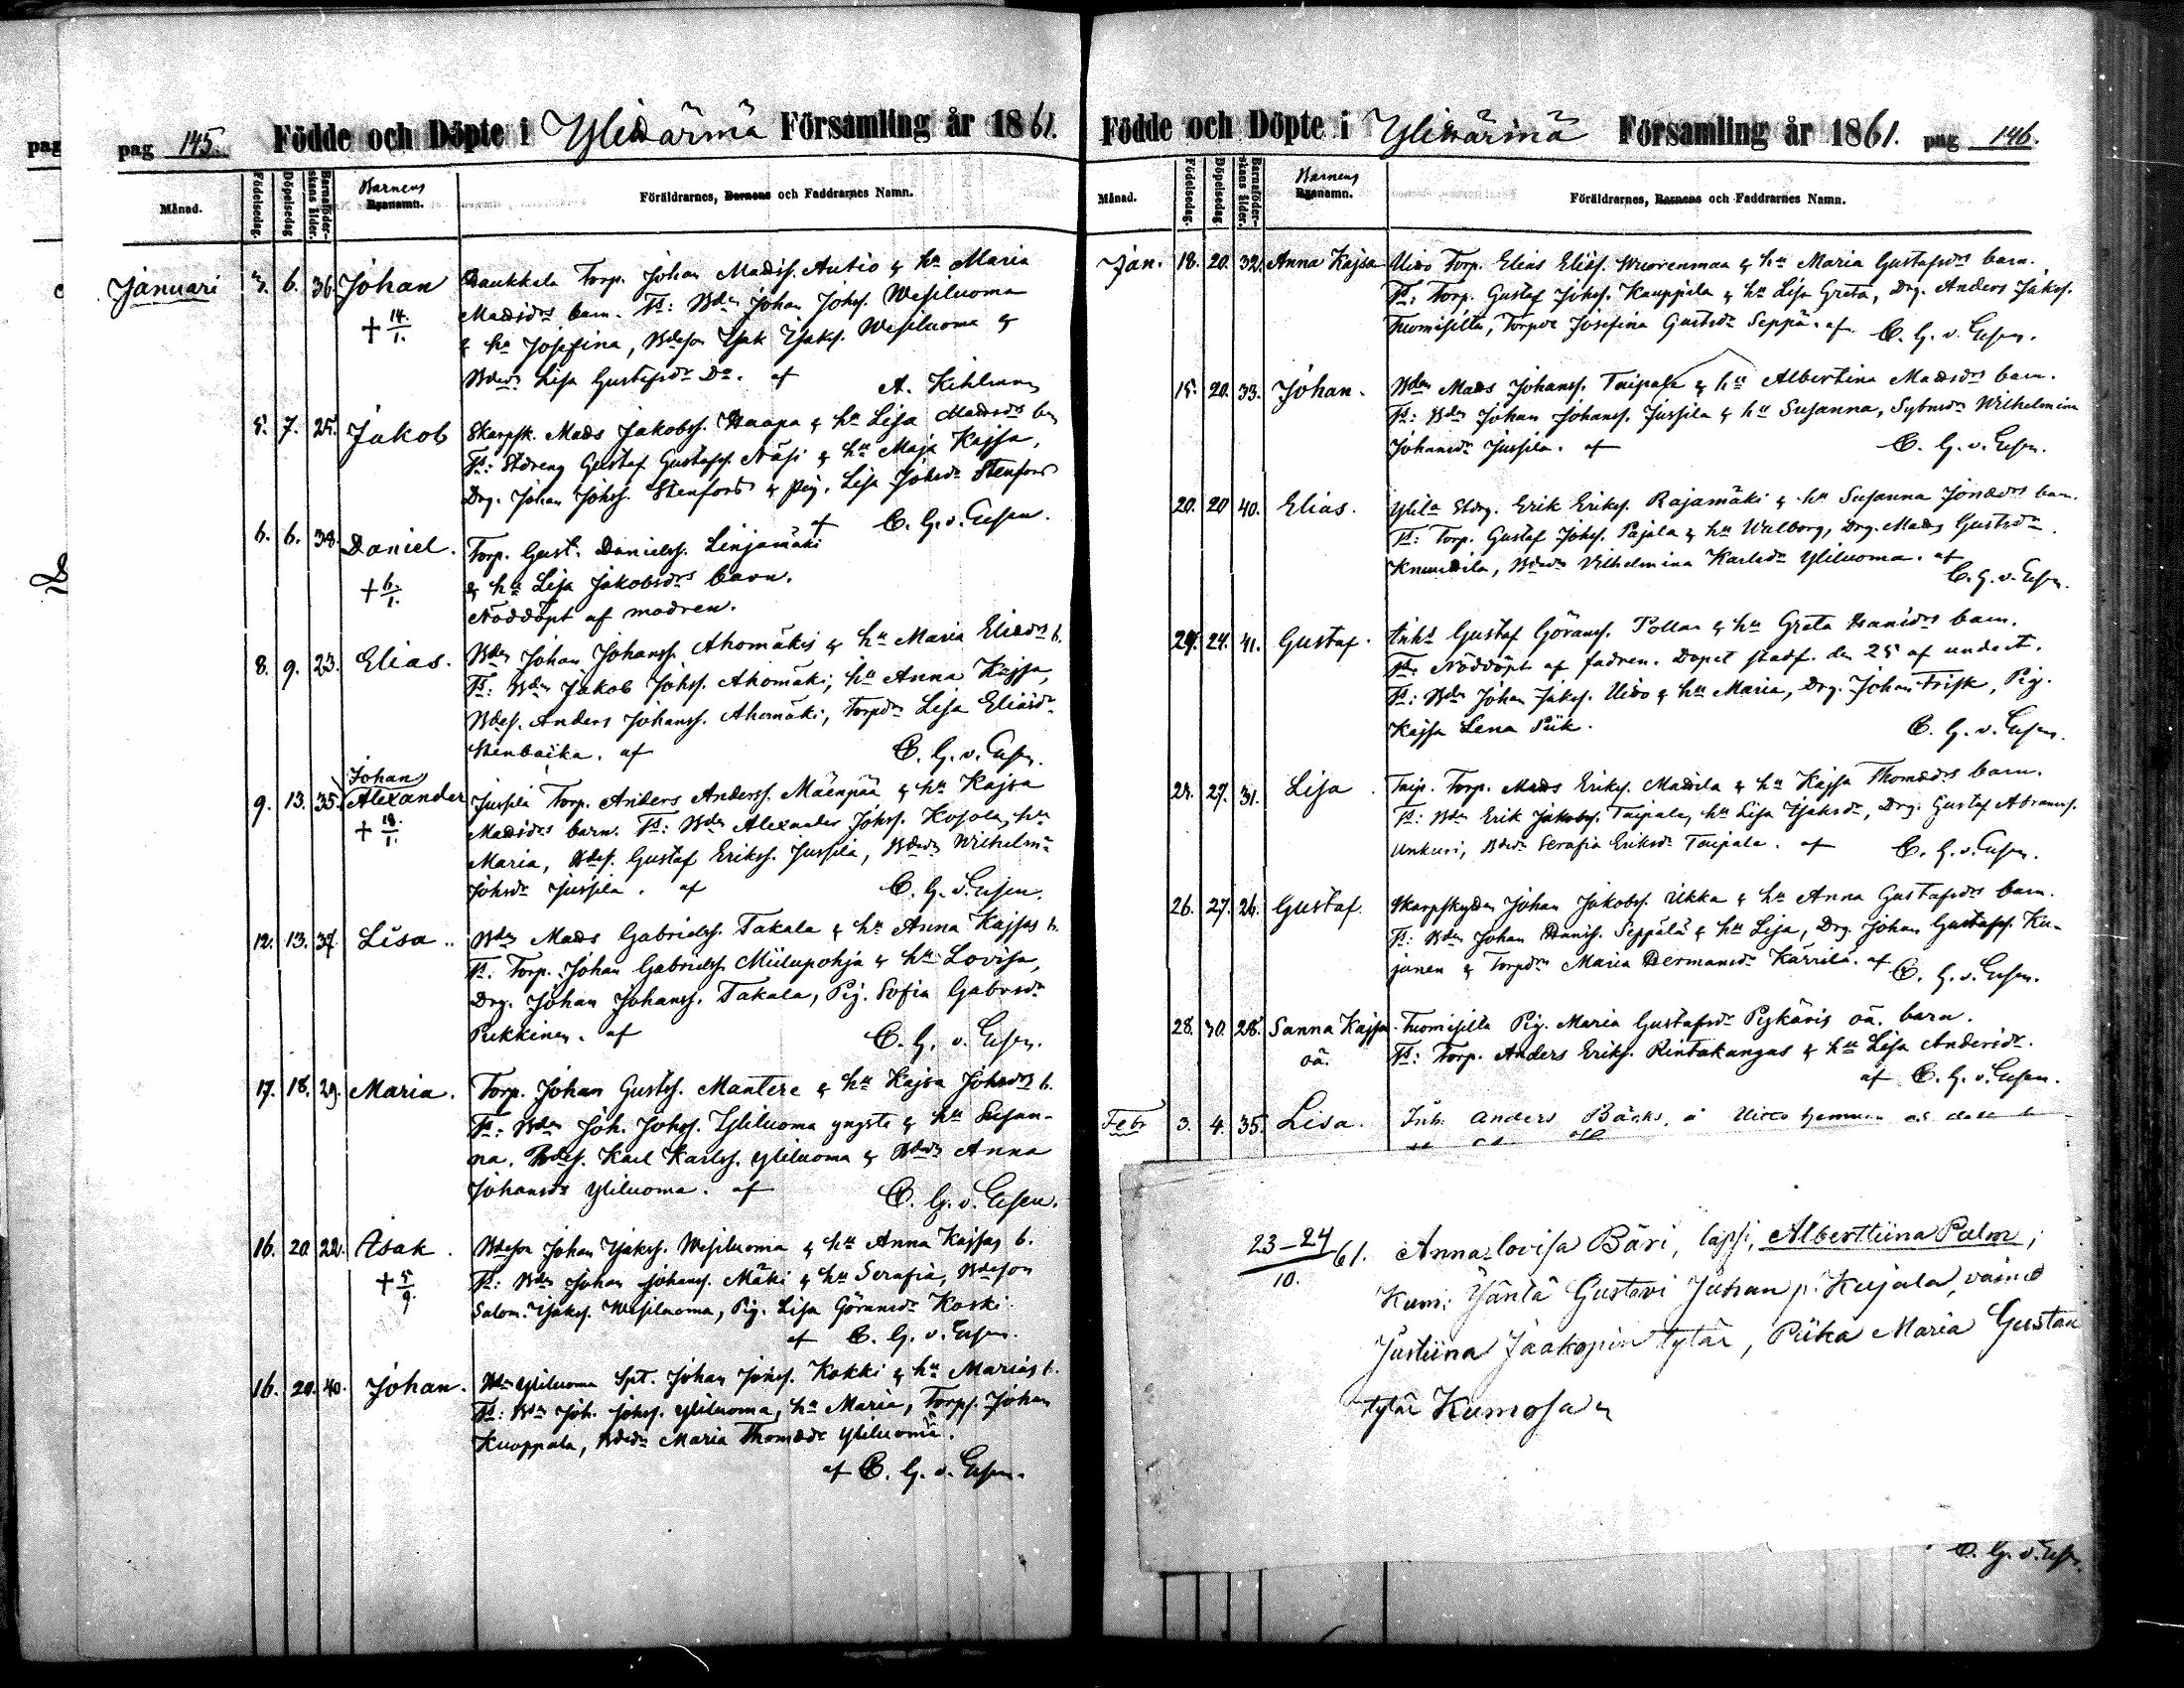 pag 145. Födde och Döpte i Ylihärmä Församling år 1861.
Månad. Födelsedag. Döpelsedag Barnaföderskans ålder. Barnens Föräldrarnes, Barnens och Faddrarnes Namn.
Januari 3. 6. 36. Johan Haukkala Torp. Johan Madss. Autio & hu Maria
+ 14./1. Madsdrs barn. Fs: Bdn Johan Johss. Wesiluoma
& hu Josefina, Bdeson Isak Isakss. Wesiluoma &
Bdedr Lisa Gustafsdr Do. af A. Kihlman
5. 7. 25. Jakob Skarpsk. Mads Jakobss. Haapa & hu Lisa Madsdrs bn
Fs: Stdreng Gustaf Gustafss. Näsi & hu Maja Kajsa,
Drg. Johan Johss. Stenfors & pig. Lisa Johsdr Stenfors
af C. G. v. Essen.
6. 6. 38. Daniel. Torp. Gust. Danielss. Linjamäki
+ 6./1. & hu Lisa Jakobsdrs barn.
Nöddöpt af modren.
8. 9. 23. Elias. Bdn Johan Johanss. Ahomäkis & hu Maria Eliædrs b.
Fs: Bdn Jakob Johss. Ahomäki, hu Anna Kajsa,
Bdes. Anders Johanss. Ahomäki, Torpdr Lisa Eliasdr
Stenbacka. af C. G. v. Essen.
9. 13. 35. Johan Alexander Jussila Torp. Anders Anderss. Mäenpää & hu Kajsa
+ 18./1. Madsdrs barn. Fs: Bdn Alexander Johss. Kojola, hu
Maria, Bdes. Gustaf Erikss. Jussila, Bdedr Wilhelma
Johsdr Jussila. af C. G. v. Essen.
12. 13. 37. Lisa. Bdn Mads Gabrielss. Takala & hu Anna Kajsas b.
Fs. Torp. Johan Gabrielss. Miilupohja & hu Lovisa,
Drg. Johan Johanss. Takala, Pig. Sofia Gabrsdr
Pukkinen. af C. G. v. Essen.
17. 18. 29. Maria. Torp. Johan Gustss. Mantere & hu Kajsa Johsdrs b.
Fs: Bdn Joh. Johss. Yliluoma yngste & hu Susanna.
Bdes. Karl Karlss. Yliluoma & Bdedr Anna
Johansdr Yliluoma. af C. G. v. Essen.
16. 20. 22. Isak. Bdeson Johan Isakss. Wesiluoma & hu Anna Kajsas b.
+ 5/9. Fs: Bdn Johan Johanss. Mäki & hu Serafia, Bdeson
Salom. Isakss. Wesiluoma, Pig. Lisa Göransdr Koski.
af C. G. v. Essen.
16. 20. 40. Johan. Yliluoma Spt. Johan Johss. Kokki & hu Marias b.
Fs: Bdn Joh. Johss. Yliluoma, hu Maria, Torps. Johan
Kuoppala, Bdedr Maria Thomædr Yliluoma.
af C. G. v. Essen.
Födde och Döpte i Ylihärmä Församling år 1861. pag 146.
Månad. Födelsedag. Döpelsedag Barnaföderskans ålder. Barnens Föräldrarnes, Barnens och Faddrarnes Namn.
Jan. 18. 20. 32. Anna Kajsa Uito Torp. Elias Eliss. Wuorenmaa & hu Maria Gustafsdrs barn.
Fs: Torp. Gustaf Johss. Kauppila & hu Lisa Greta, Drg. Anders Jakss.
Tuomisilta, Torpdr Josefina Gustsdr Seppä. af C. G. v. Essen.
15. 20. 33. Johan. Bdn Mads Johanss. Taipale & hu Albertina Madsdrs barn.
Fs: Bdn Johan Johanss. Jussila & hu Susanna, Wilhelmina
Johansdr Jussila. af C. G. v. Essen.
20. 20 40. Elias. Erik Erikss. Rajamäki & hu Susanna Jonædrs barn.
Fs: Torp. Gustaf Johss. Pajala & hu Walborg, Drg. Mads Gustsdr
Knuutila, Bdedr Vilhelmina Karlsdr Yliluoma. af
C. G. v. Essen.
24. 24. 41. Gustaf. Inhs Gustaf Göranss. Pollar & hu Greta Hansdrs barn.
Nöddöpt af fadren. Dopet stadf. den 25 af undert.
Fs: Bdn Johan Jakss. Uito & hu Maria, Drg. Johan Frisk, Pig.
Kajsa Lena Piik. C. G. v. Essen.
24. 27. 31. Lisa. Taip. Torp. Mads Erikss. Mattila & hu Kajsa Thomædrs barn.
Fs: Bdn Erik Jakobss. Taipale, hu Lisa Isaksdr, Drg. Gustaf Abramss.
Unkuri, Bdedr Serafia Eriksdr Taipale. af C. G. v. Essen.
26. 27. 26. Gustaf. Skarpskytten Johan Jakobss. Ukka & hu Anna Gustafsdrs barn.
Fs: Bdn Johan Hanss. Seppälä & hu Lisa, Drg. Johan Gustafss. Kujanen
& Torpdr Maria Hermansdr Karrila. af C. G. v. Essen.
28. 30. 28. Sanna Kajsa Tuomisilta Pig. Maria Gustafsdr oä. barn.
oä. Fs: Torp. Anders Erikss. Rintakangas & hu Lisa Andersdr.
af C. G. v. Essen.
Febr 3. 4. 35. Lisa. Inh. Anders Bäcks, å Uitto hemman
23–24/10. 61. Anna lovisa Bäri, lapsi, Alberttiina Palm,
Kum: Jäntä Gustavi Juhan p. Kujala, vaimo
Justiina Jaakopin tytär, Piika Maria Gustav
tytär Kumosa
C. G. v. Essen.